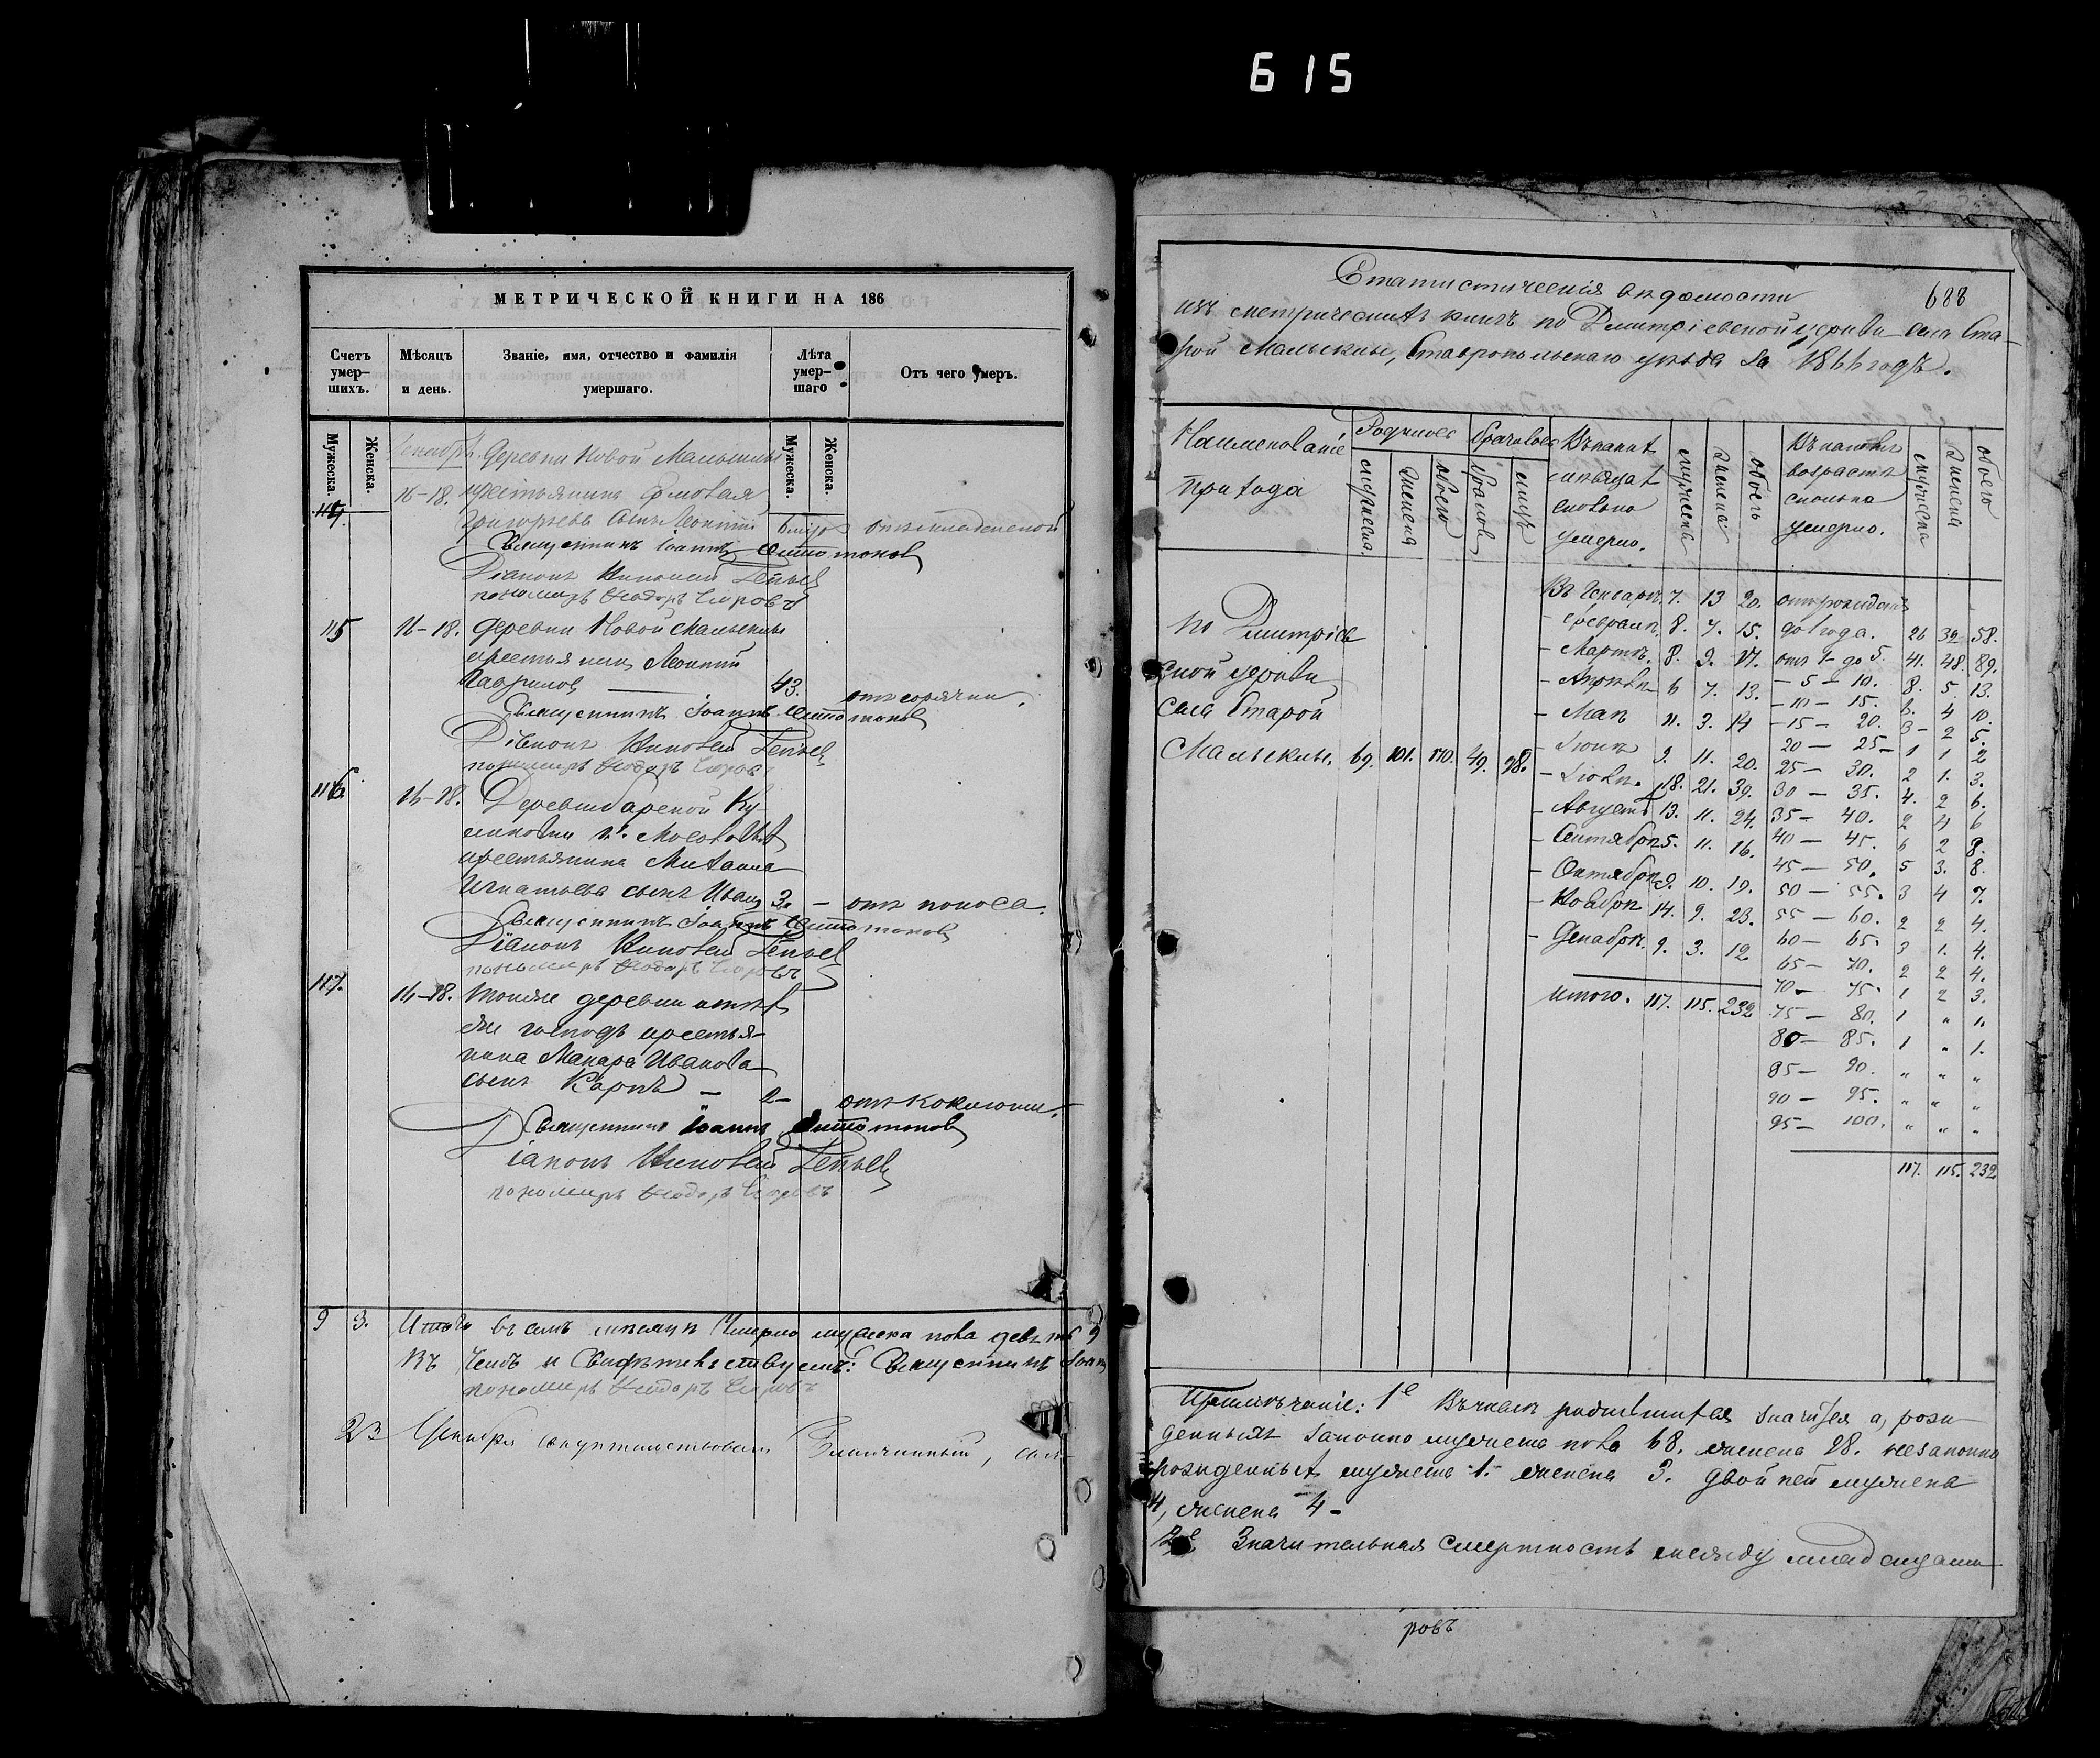 615
МЕТРИЧЕСКОЙ КНИГИ НА 186
Счетъ умер-шихъ.
Мѣсяцъ и день.
Званіе, имя, отчество и фамилія умершаго.
Лѣта умер-шаго
Отъ чего умеръ.
Мужеска.
Женска.
Мужеска.
Женска.
Декабрь. Деревни Новой Малыклы
114. 16-18. крестьянина
Григорьева сынъ Леонтій
Священникъ Іоаннъ
Діаконъ
пономарь Ѳеодоръ
115 16-18. деревни Новой Малыклы
крестьянинъ Леонтій
Гавриловъ — 43. отъ горячки.
Священникъ Іоаннъ
Діаконъ
пономарь Ѳеодоръ
116. 16-18. Деревни
крестьянина Михаила
Игнатьева сынъ Иванъ 3. — отъ поноса.
Священникъ Іоаннъ
Діаконъ
пономарь Ѳеодоръ
117. 16-18. Тойже деревни
же господъ крестья-
нина Макара Иванова
сынъ Карпъ — 2 — отъ коклюши.
Священникъ Іоаннъ
Діаконъ
пономарь Ѳеодоръ
9 3. Итого въ семъ мѣсяцѣ умерло мужеска пола девять 9
Въ чемъ и свидѣтельствуемъ: Священникъ Іоаннъ
пономарь Ѳеодоръ
23 Генваря свидѣтельствовалъ Благочинный,
688
Статистическія вѣдомости
изъ метрическихъ книгъ по Димитріевской церкви села Ста-
рой Малыклы, Ставропольскаго уѣзда за 1866 годъ.
Наименованіе прихода
Родилось
мужеска
женска
обоего
Браковъ
браковъ
лицъ
Въ какихъ мѣсяцахъ сколько умерло.
мужеска
женска
обоего
Въ какомъ возрастѣ сколько умерло.
мужеска
женска
обоего
По Димитріев-
ской церкви
села Старой
Малыклы. 69. 101. 170. 49. 98.
Въ Генварѣ. 7. 13 20.
- Февралѣ. 8. 7. 15.
- Мартѣ. 8. 9. 17.
- Апрѣлѣ 6 7. 13.
- Маѣ 11. 3. 14
- Іюнѣ 9. 11. 20.
- Іюлѣ. 18. 21. 39.
- Августѣ 13. 11. 24.
- Сентябрѣ 5. 11. 16.
- Октябрѣ 9. 10. 19.
- Ноябрѣ 14. 9. 23.
- Декабрѣ. 9. 3. 12
Итого. 117. 115. 232
отъ рожденія
до 1 года. 26 32 58.
отъ 1 - до 5. 41. 48. 89.
- 5 - 10. 8. 5. 13.
- 10 - 15. 6. 4 10.
- 15 - 20. 3 - 2 5.
20 - 25 - 1 1 2
25 - 30. 2 1. 3.
30 - 35. 4. 2 6.
35 - 40. 2 4 6
40 - 45. 6 2 8.
45 - 50. 5 3. 8.
50 - 55. 3 4 7.
55 - 60. 2 2 4.
60 - 65. 3 1. 4.
65 - 70. 2 2 4.
70 - 75. 1 2 3.
75 - 80. 1 „ 1.
80 - 85. 1 „ 1.
85 - 90. „ „ „
90 - 95. „ „ „
95 - 100. „ „ „
117. 115. 232
Примѣчаніе: 1е Въ числѣ родившихся значится а, рож-
денныхъ законно мужеска пола 68. женска 98. незаконно
рожденныхъ мужеска 1. женска 3. двойней мужеска
4, женска 4 -
2е Значительная смертность между младенцами
ровъ